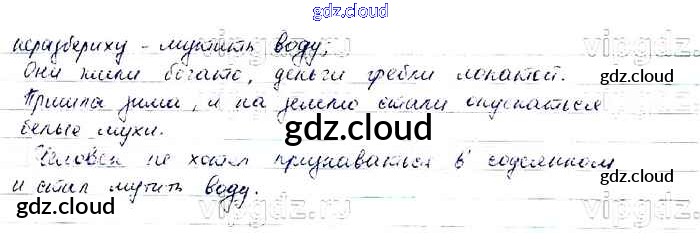 gdz.cloud
неразбериху - мутить воду;
Они жили богато, деньги гребли лопатой.
gdz.cloud
Пришла зима, и на землю стали опускаться
белые мухи.
gdz.cloud
Человек не хотел признаваться в содеянном
и стал мутить воду.
gdz.cloud
gdz.cloud